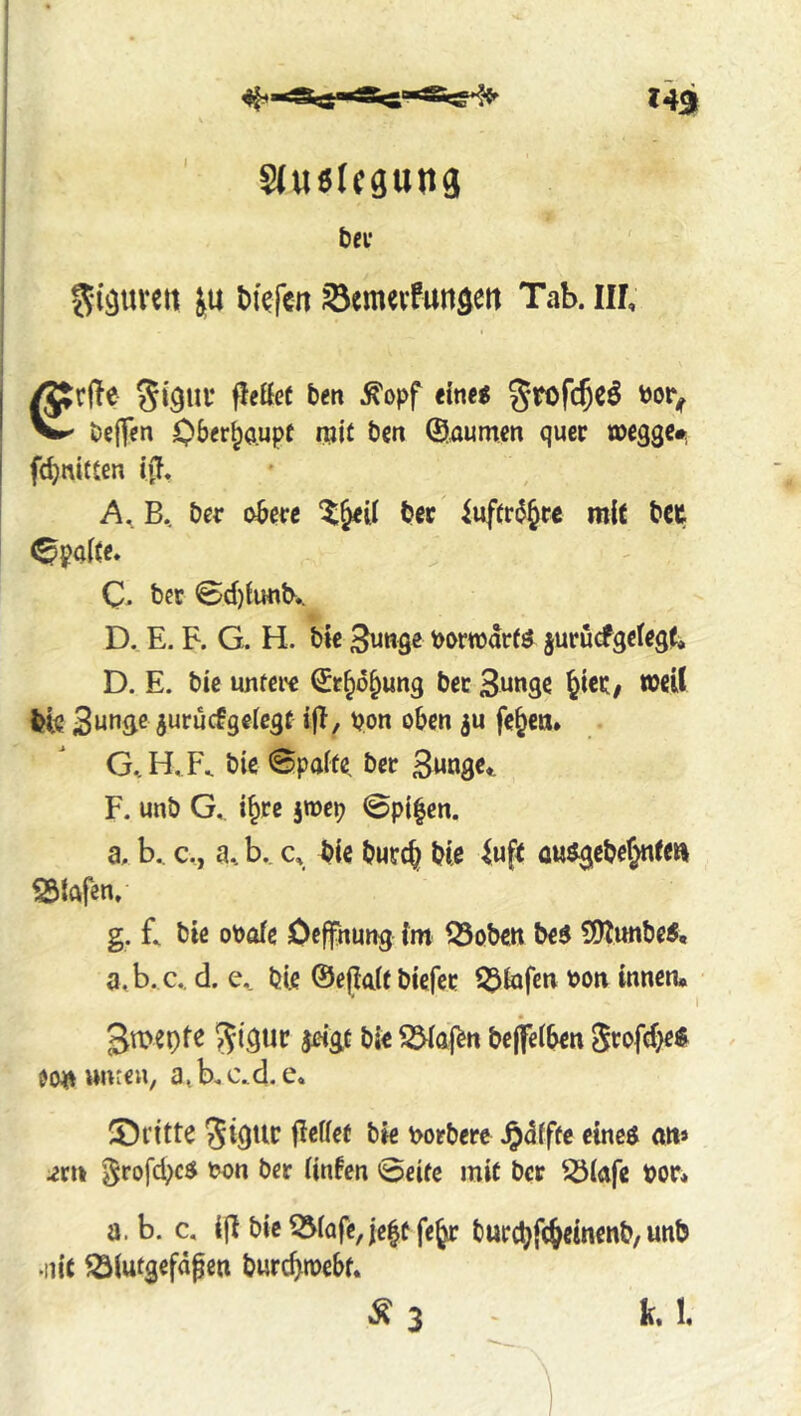 149
Auslegung
der
Figuren zu diesen Bemerkungen Tab. III.
Erste Figur stellet den Kopf eines Frosches vor,
dessen Oberhaupt mit den Gaumen quer wegge-
schnitten ist.
A. B. der obere Theil der Luftröhre mit der
Spalte.
C. der Schlund.
D. E. F. G. H. die Zunge vorwärts zurückgelegt.
D. E. die untere Erhöhung der Zunge hier, weil
die Zunge zurückgelegt ist, von oben zu sehen.
G. H. F. die Spalte der Zunge.
F. und G. ihre zwey Spitzen.
a. b. c., a. b. c. die durch die Luft ausgedehnten
Blasen.
g. f. die ovale Oeffnung im Boden des Mundes.
a. b. c. d. e. die Gestalt dieser Blasen von innen.
Zweyte Figur zeigt die Blasen desselben Frosches
von unten, a. b. c. d. e.
Dritte Figur stellet die vordere Hälfte eines an-
dern Frosches von der linken Seite mit der Blase vor.
a. b. c. ist die Blase, jetzt sehr durchscheinend, und
mit Blutgefäßen durchwebt.
K 3 k. l.